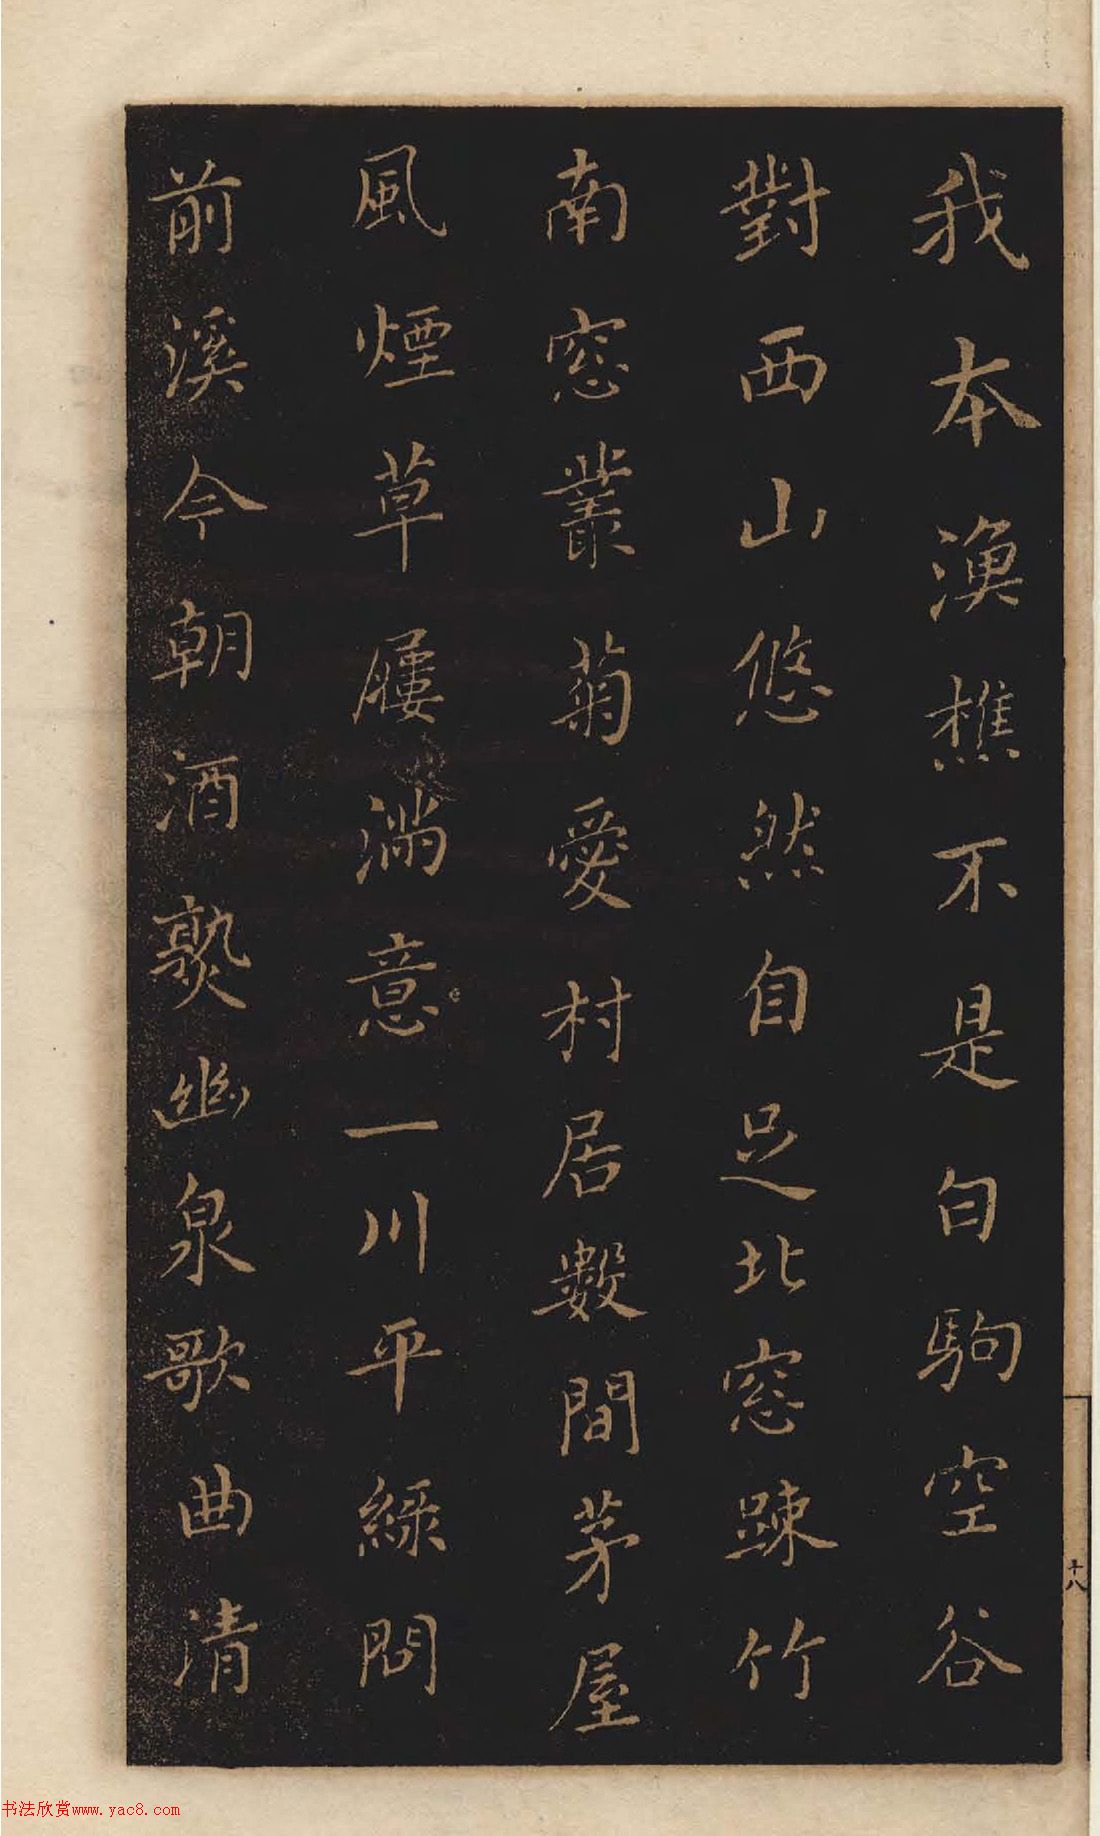 我本漁樵不是白駒空谷
對西山悠然自足北窓踈竹
南窓叢菊愛村居數間茅屋
風煙草屨滿意一川平綠問
前溪今朝酒熟幽泉歌曲清
十八
书法欣赏www.yac8.com